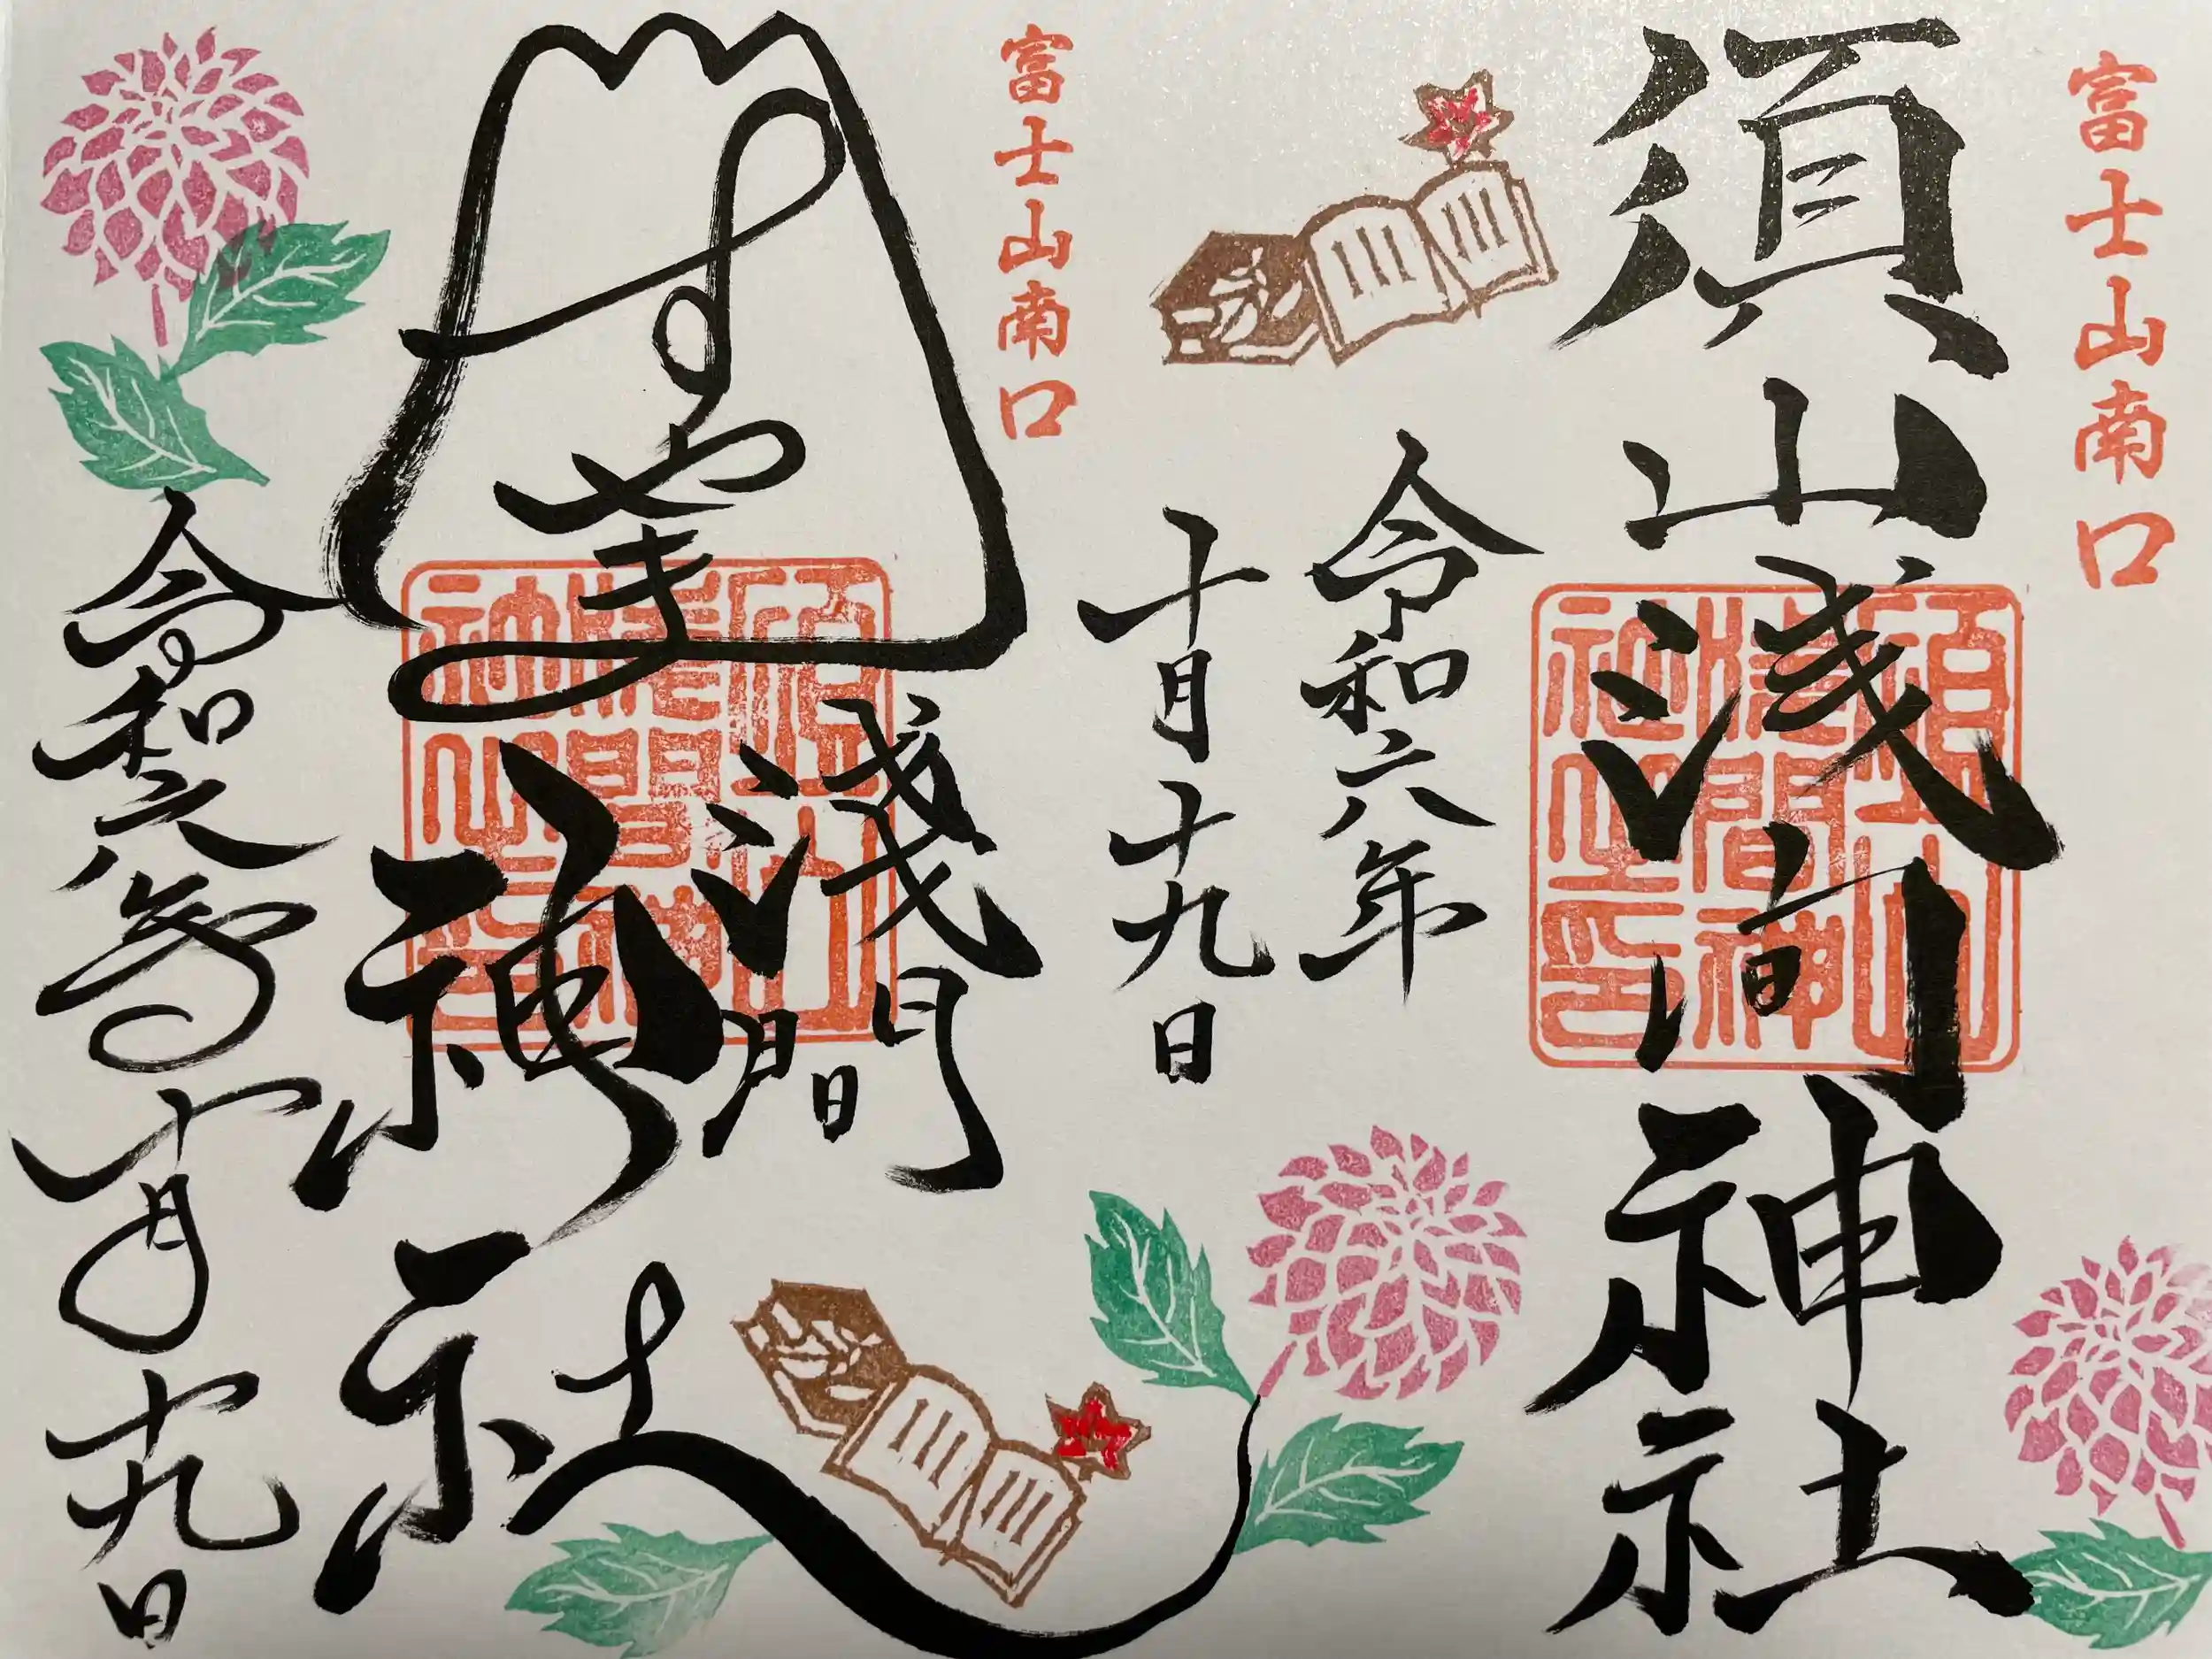 富士山南口
須山浅间神社
須山浅間神社之印
令和六年
十月十九日
富士山南口
すやま
浅間
神社
須山浅間神社之印
令和六年十月十九日